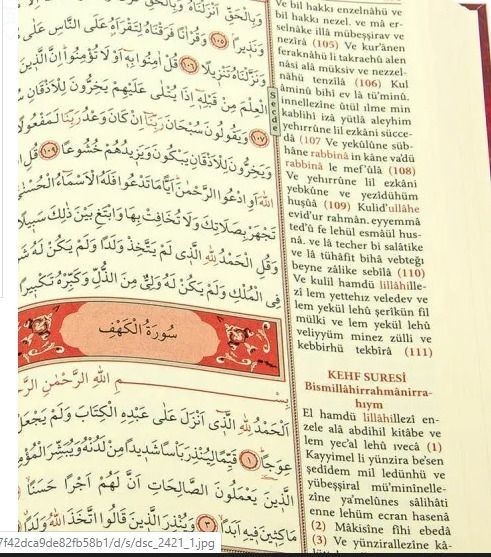 وَبِالْحَقِّ اَنْزَلْنَاهُ وَبِالْحَقِّ
وَنَذٖيراًۘ ﴿١٠٥﴾ وَقُرْاٰناً فَرَقْنَاهُ لِتَقْرَاَهُ عَلَى النَّاسِ عَلٰى
وَنَزَّلْنَاهُ تَنْزٖيلاً ﴿١٠٦﴾ قُلْ اٰمِنُوا بِهٖٓ اَوْ لَا تُؤْمِنُواؕ اِنَّ الَّذٖينَ
الْعِلْمَ مِنْ قَبْلِهٖٓ اِذَا يُتْلٰى عَلَيْهِمْ يَخِرُّونَ لِلْاَذْقَانِ
﴿١٠٧﴾ وَيَقُولُونَ سُبْحَانَ رَبِّنَٓا اِنْ كَانَ وَعْدُ رَبِّنَا لَمَفْعُولاً
وَيَخِرُّونَ لِلْاَذْقَانِ يَبْكُونَ وَيَزٖيدُهُمْ خُشُوعاً ﴿١٠٩﴾ قُلِ
اللّٰهَ اَوِ ادْعُوا الرَّحْمٰنَؕ اَياًّ مَا تَدْعُوا فَلَهُ الْاَسْمَٓاءُ الْحُسْنٰى
تَجْهَرْ بِصَلَاتِكَ وَلَا تُخَافِتْ بِهَا وَابْتَغِ بَيْنَ ذٰلِكَ سَبٖيلاً
وَقُلِ الْحَمْدُ لِلّٰهِ الَّذٖي لَمْ يَتَّخِذْ وَلَداً وَلَمْ يَكُنْ لَهُ
فِي الْمُلْكِ وَلَمْ يَكُنْ لَهُ وَلِيٌّ مِنَ الذُّلِّ وَكَبِّرْهُ تَكْبٖيراً
سُورَةُ الْكَهْفِ
بِسْمِ اللّٰهِ الرَّحْمٰنِ
اَلْحَمْدُ لِلّٰهِ الَّذٖٓي اَنْزَلَ عَلٰى عَبْدِهِ الْكِتَابَ وَلَمْ يَجْعَلْ
عِوَجاًؕ ﴿١﴾ قَيِّماً لِيُنْذِرَ بَأْساً شَدٖيداً مِنْ لَدُنْهُ وَيُبَشِّرَ
الَّذٖينَ يَعْمَلُونَ الصَّالِحَاتِ اَنَّ لَهُمْ اَجْراً حَسَناً
مَاكِثٖينَ فٖيهِ اَبَداً ﴿٣﴾ وَيُنْذِرَ الَّذٖينَ قَالُوا اتَّخَذَ اللّٰهُ وَلَداً
Secde
Ve bil hakkı enzelnâhü ve
bil hakkı nezel. ve mâ er-
selnâke illâ mübeşşirav ve
nezîrâ (105) Ve kur'ânen
feraknâhü li takraehû alen
nâsi alâ müksiv ve nezzel-
nâhü tenzîlâ (106) Kul
âminû bihî ev lâ tü'minû.
innellezîne ûtül ılme min
kablihî izâ yütlâ aleyhim
yehırrûne lil ezkâni sücce-
dâ (107 Ve yekûlûne süb-
hâne rabbinâ in kâne va'dü
rabbinâ le mef'ûlâ (108)
Ve yehırrûne lil ezkâni
yebkûne ve yezîdühüm
huşûâ (109) Kulid'ullâhe
evid'ur rahmân. eyyemmâ
ted'û fe lehül esmâül hus-
nâ. ve lâ techer bi salâtike
ve lâ tühâfit bihâ vebteğı
beyne zâlike sebîlâ (110)
Ve kulil hamdü lillâhille-
zî lem yettehız veledev ve
lem yekül lehû şerîkün fil
mülki ve lem yekül lehû
veliyyüm minez zülli ve
kebbirhü tekbîrâ (111)
KEHF SURESİ
Bismillâhirrahmânirra-
hıym
El hamdü lillâhillezî en-
zele alâ abdihil kitâbe ve
lem yec'al lehû ıvecâ (1)
Kayyimel li yünzira be'sen
şedîdem mil ledünhü ve
yübeşşiral mü'minînelle-
zîne ya'melûnes sâlihâti
enne lehüm ecran hasenâ
(2) Mâkisîne fîhi ebedâ
(3) Ve yünzirallezîne kâ-
7f42dca9de82fb58b1/d/s/dsc_2421_1.jpg